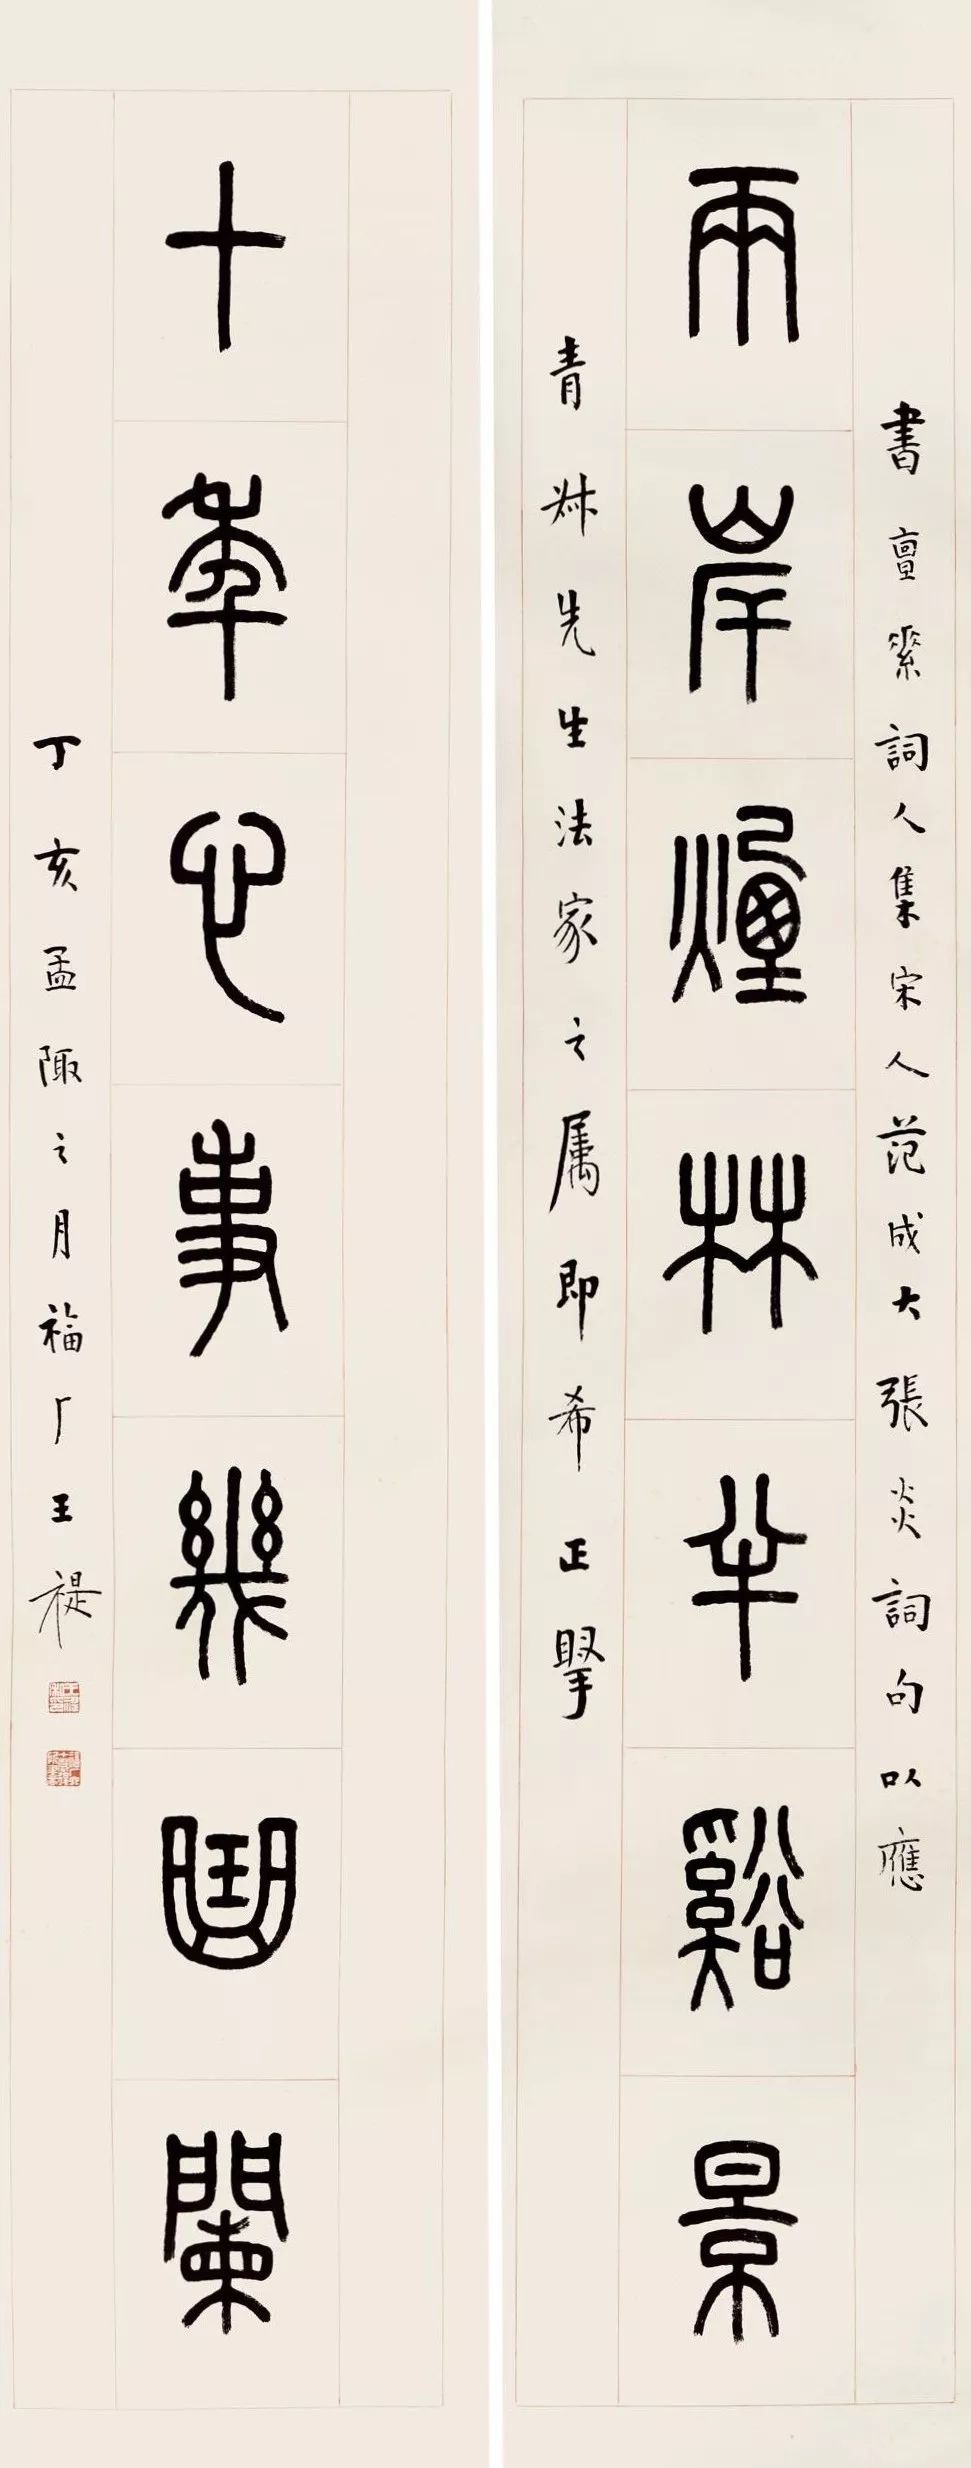 書亶素詞人集宋人范成大張炎詞句以應
兩岸煙林半谿景
青叔先生法家之屬即希正掔
十年心事幾曲闌
丁亥孟陬之月福厂王禔